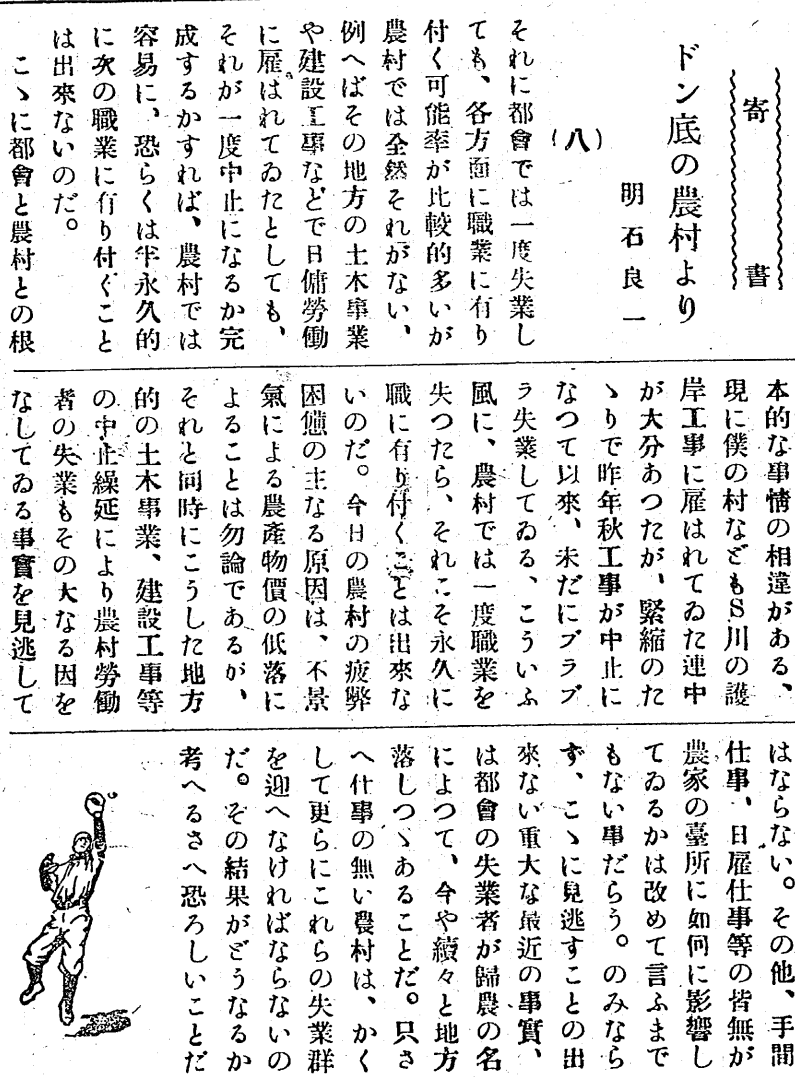 寄書
ドン底の農村より
明石良一
(八)
それに都會では一度失業し
ても、各方面に職業に有り
付く可能率が比較的多いが
農村では全然それがない、
例へばその地方の土木事業
や建設工事などで日傭勞働
に雇はれてゐたとしても、
それが一度中止になるか完
成するかすれば、農村では
容易に、恐らくは半永久的
に次の職業に有り付くこと
は出來ないのだ。
こゝに都會と農村との根
本的な事情の相違がある、
現に僕の村などもS川の護
岸工事に雇はれてゐた連中
が大分あつたが、緊縮のた
ゝりで昨年秋工事が中止に
なつて以來、未だにブラブ
ラ失業してゐる、こういふ
風に、農村では一度職業を
失つたら、それこそ永久に
職に有り付くことは出來な
いのだ。今日の農村の疲弊
困憊の主なる原因は、不景
氣による農產物價の低落に
よることは勿論であるが、
それと同時にこうした地方
的の土木事業、建設工事等
の中止繰延により農村勞働
者の失業もその大なる因を
なしてゐる事實を見逃して
はならない。その他、手間
仕事、日雇仕事等の皆無が
農家の臺所に如何に影響し
てゐるかは改めて言ふまで
もない事だらう。のみなら
ず、こゝに見逃すことの出
來ない重大な最近の事實、
は都會の失業者が歸農の名
によつて、今や續々と地方
落しつゝあることだ。只さ
へ仕事の無い農村は、かく
して更らにこれらの失業群
を迎へなければならないの
だ。その結果がどうなるか
考へるさへ恐ろしいことだ